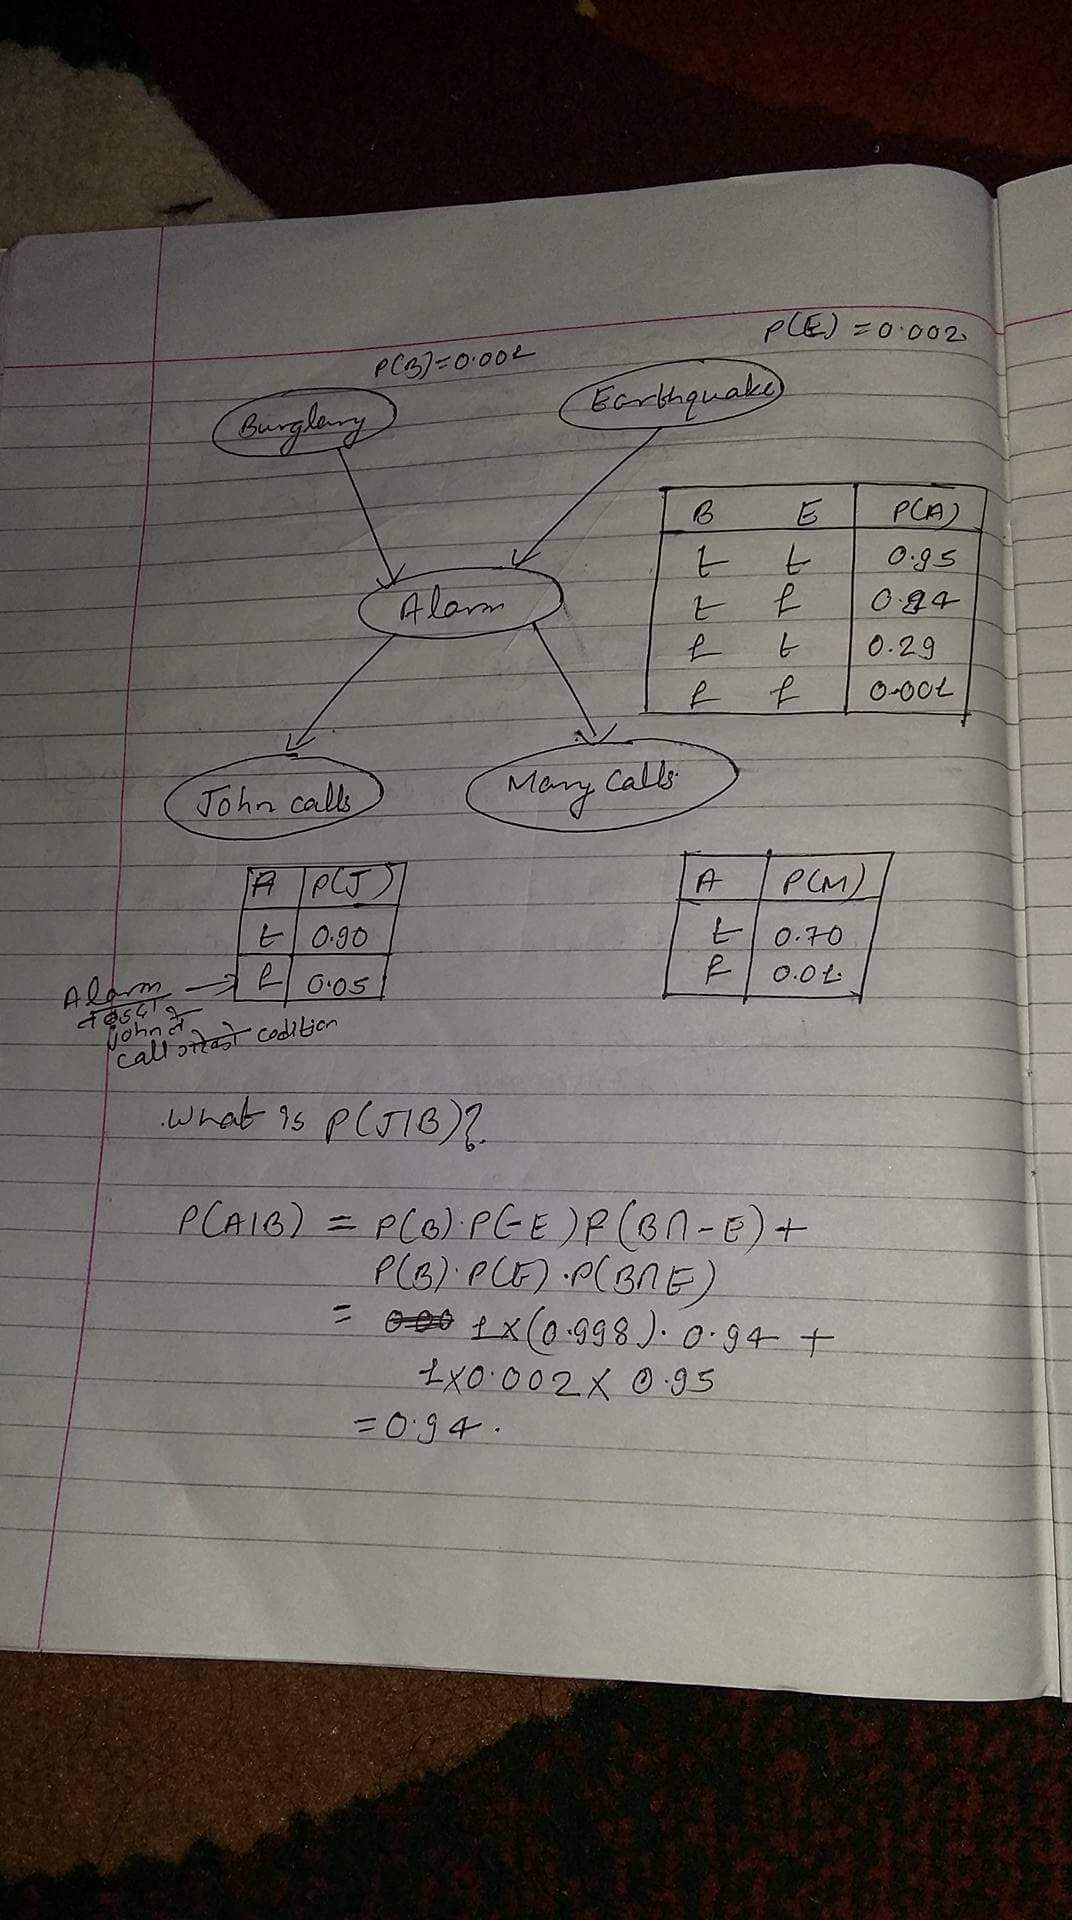 P(E) = 0.002
P(B) = 0.001
Burglary
Earthquake
B E P(A)
t t 0.95
t f 0.94
f t 0.29
f f 0.001
Alarm
John calls
Mary Calls
A P(J)
t 0.90
f 0.05
A P(M)
t 0.70
f 0.01
Alarm →
John ने
call condition
What is P(J|B)?
P(A|B) = P(B)·P(-E) P(B∩-E) +
P(B)·P(E)·P(B∩E)
= 1×(0.998)·0.94 +
1×0.002×0.95
= 0.94.